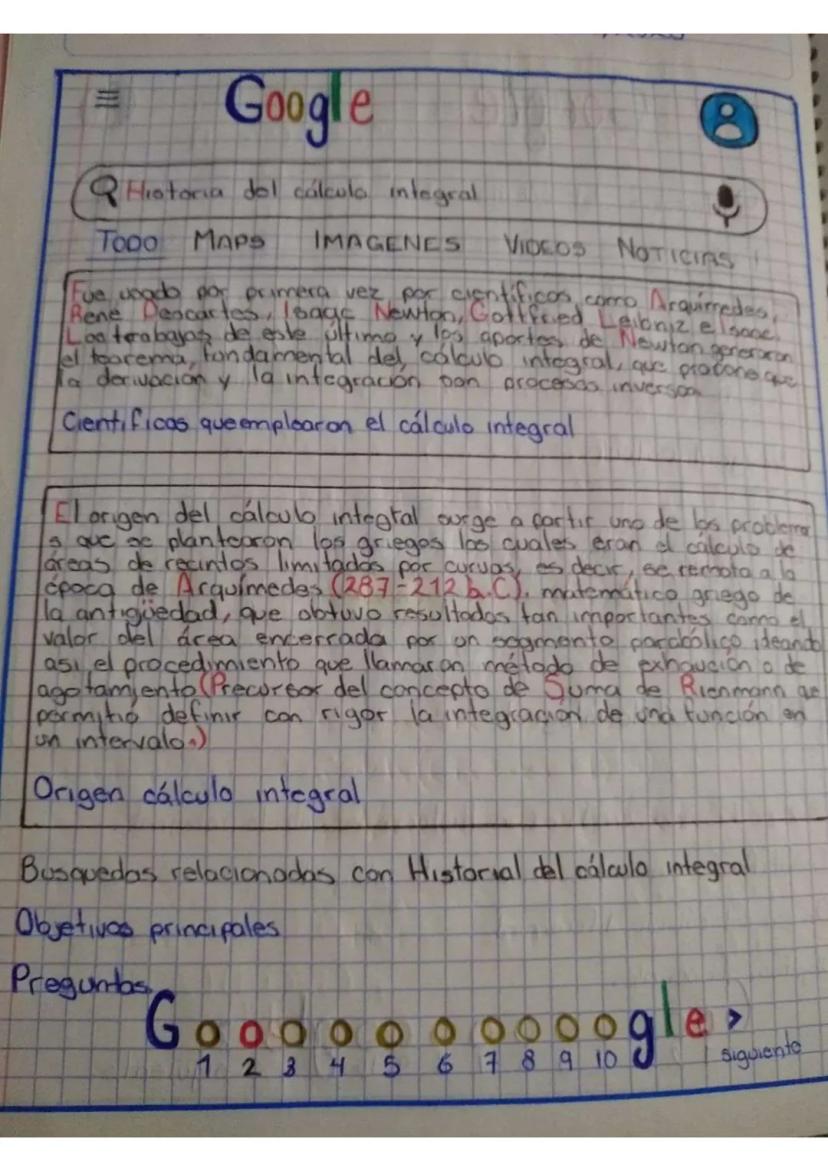 Google
Historia del cálculo integral
TODO MAPS IMAGENES VIDEOS NOTICIAS
Fue usado por primera vez por científicos, como Arquimedes,
René Descartes, Isaac Newton, Gottfried Leibniz e Isaac.
Los trabajos de este último y los aportes de Newton generaron
el teorema, fundamental del cálculo integral, que propone que
la derivación y la integración son procesos inversos
Científicos que emplearon el cálculo integral
El origen del cálculo integral surge a partir uno de los problema
s que se plantearon los griegos los cuales eran el cálculo de
áreas de recintos limitados por curvas, es decir, se remota a la
época de Arquímedes (287-212 b.C). matemático griego de
la antigüedad, que obtuvo resultados tan importantes como el
valor del área encerrada por un segmento parabólico ideando
así el procedimiento que llamaron método de exhaución o de
agotamiento (Precursor del concepto de Suma de Rienmann qe
permitió definir con rigor la integración de una función en
un intervalo.)
Origen cálculo integral
Busquedas relacionadas con Historial del cálculo integral
Objetivos principales
Preguntas
Goooooooooogle >
1 2 3 4 5 6 7 8 9 10 siguiente